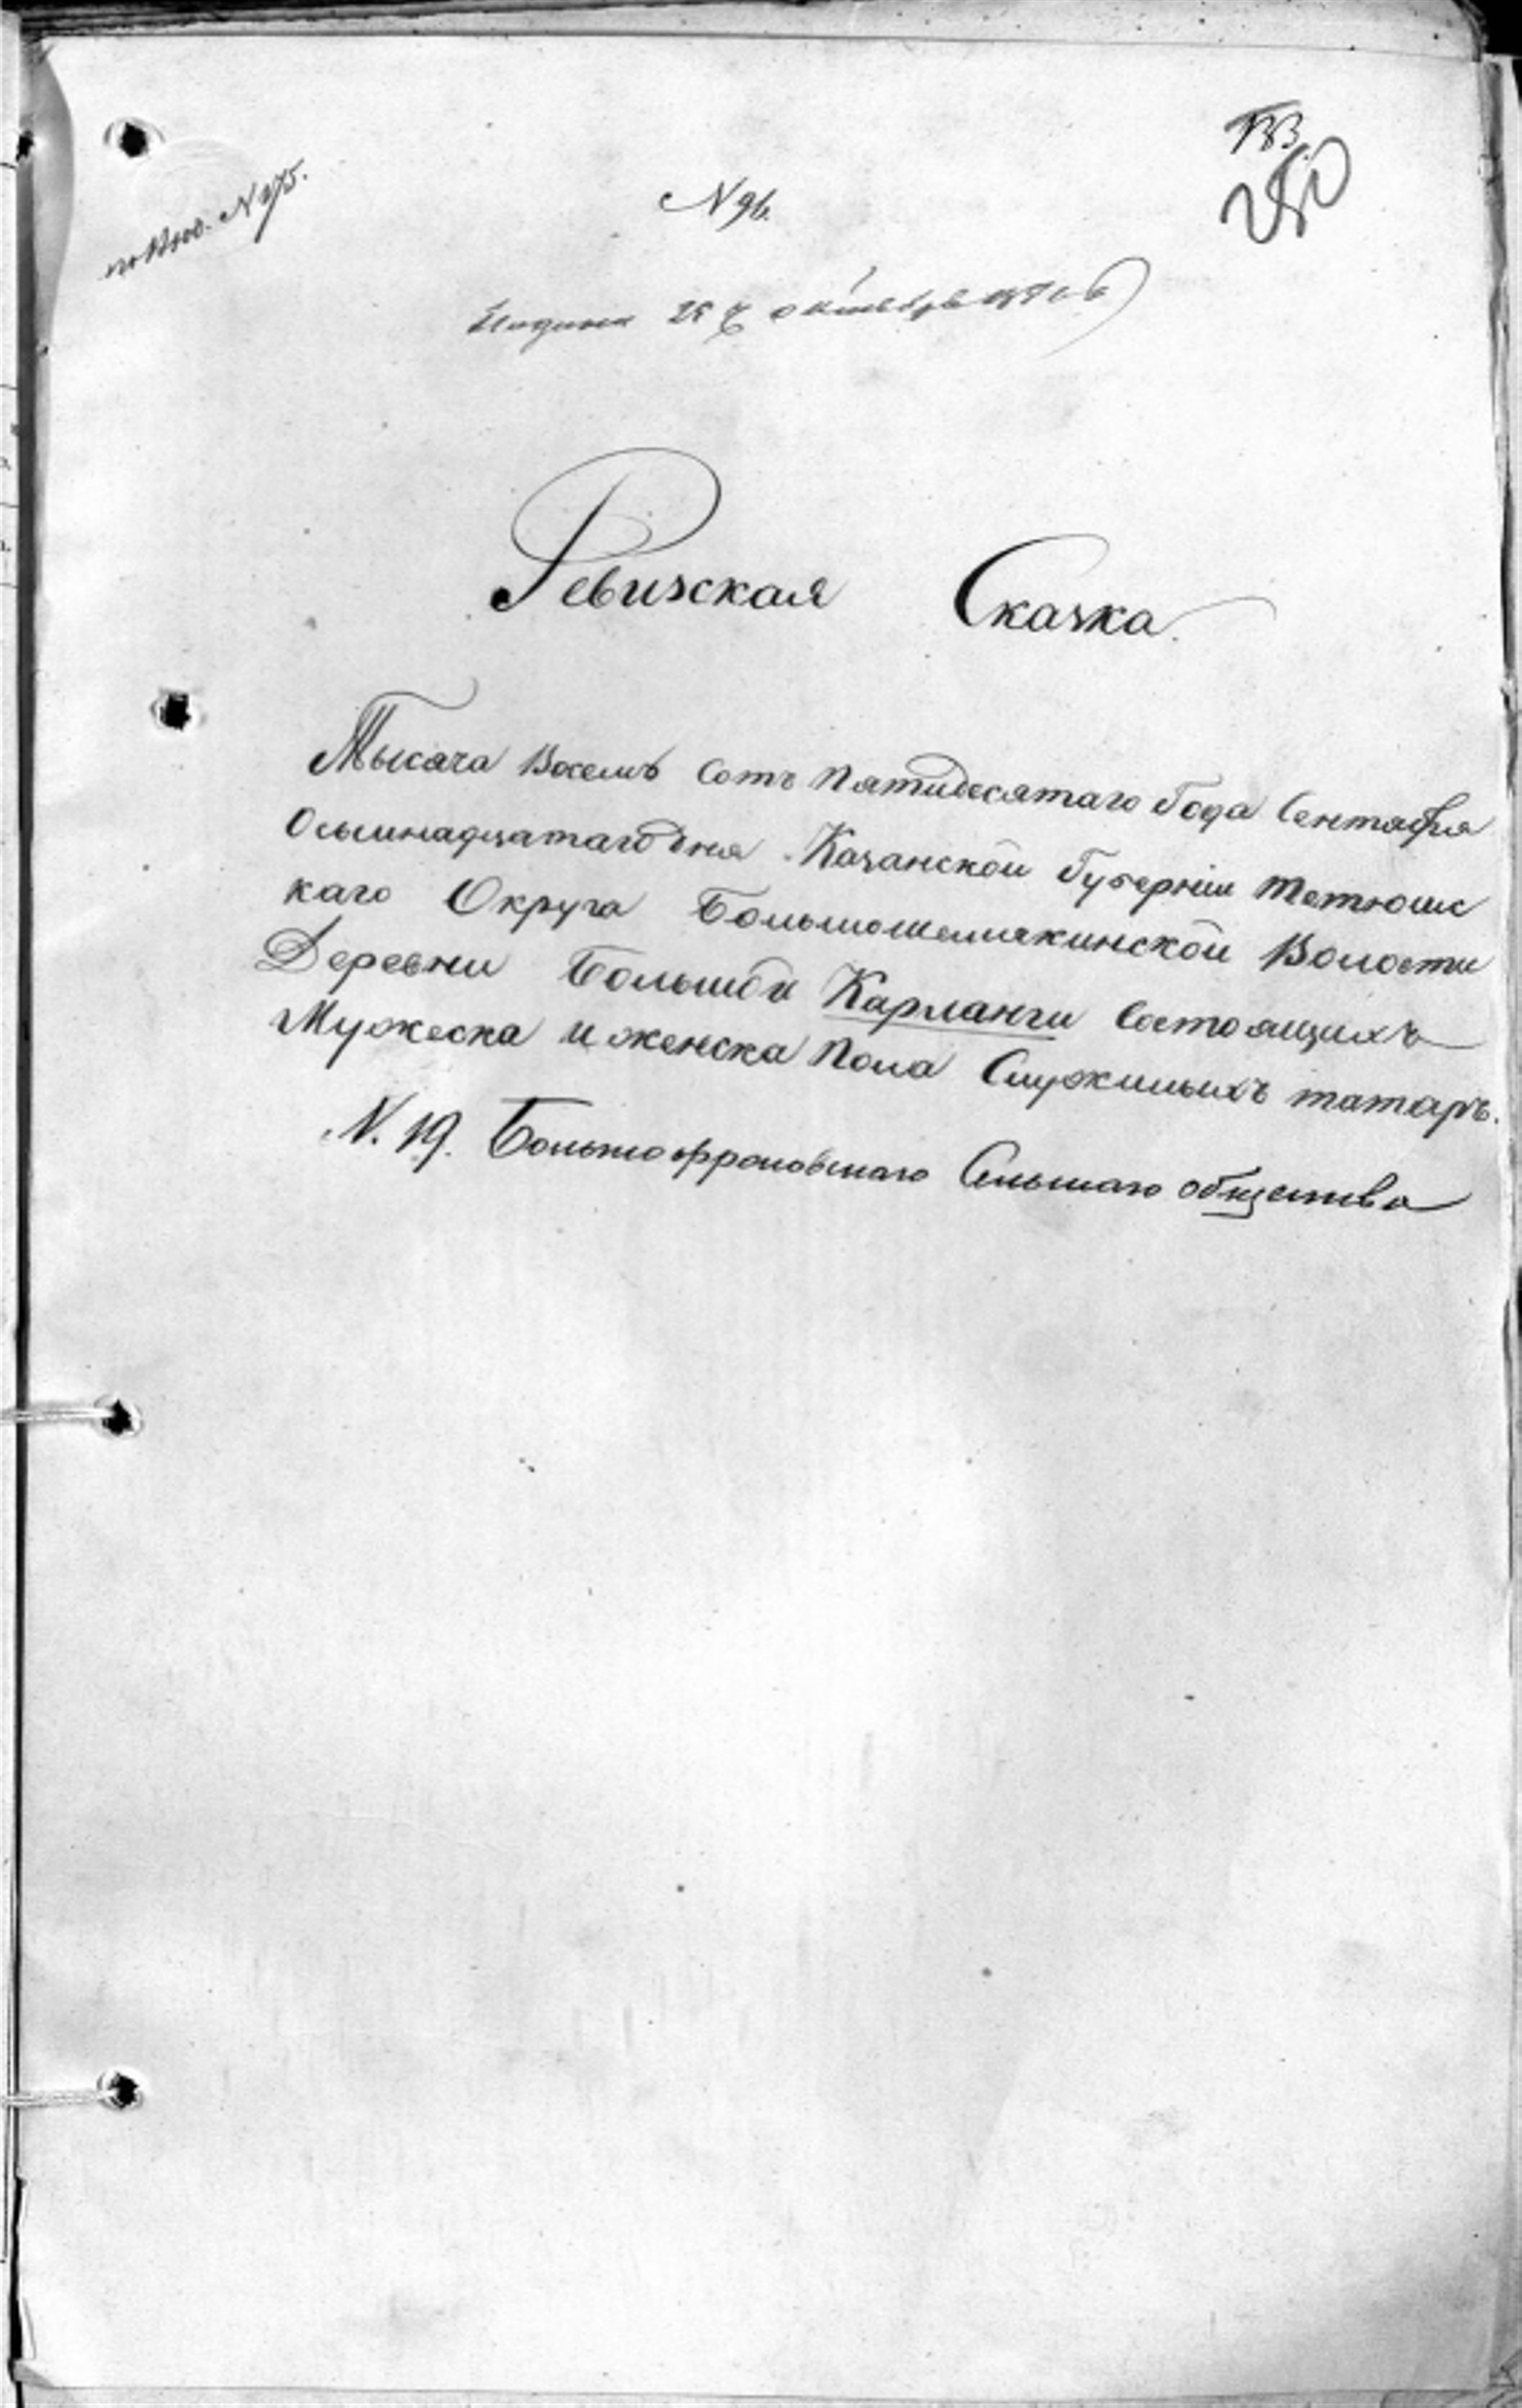 по Вхо. N 275.
N 96.
250
Подана 25 октября 1850
Ревизская Сказка.
Тысяча Восемь Сотъ Пятидесятаго Года Сентября
Осьмнадцатаго дня Казанской Губерніи Тетюшс
каго Округа Большошемякинской Волости
Деревни Большой Карланги Состоящихъ
Мужеска и женска Пола Служилыхъ татаръ.
N. 19. Большофроловскаго Сельскаго общества